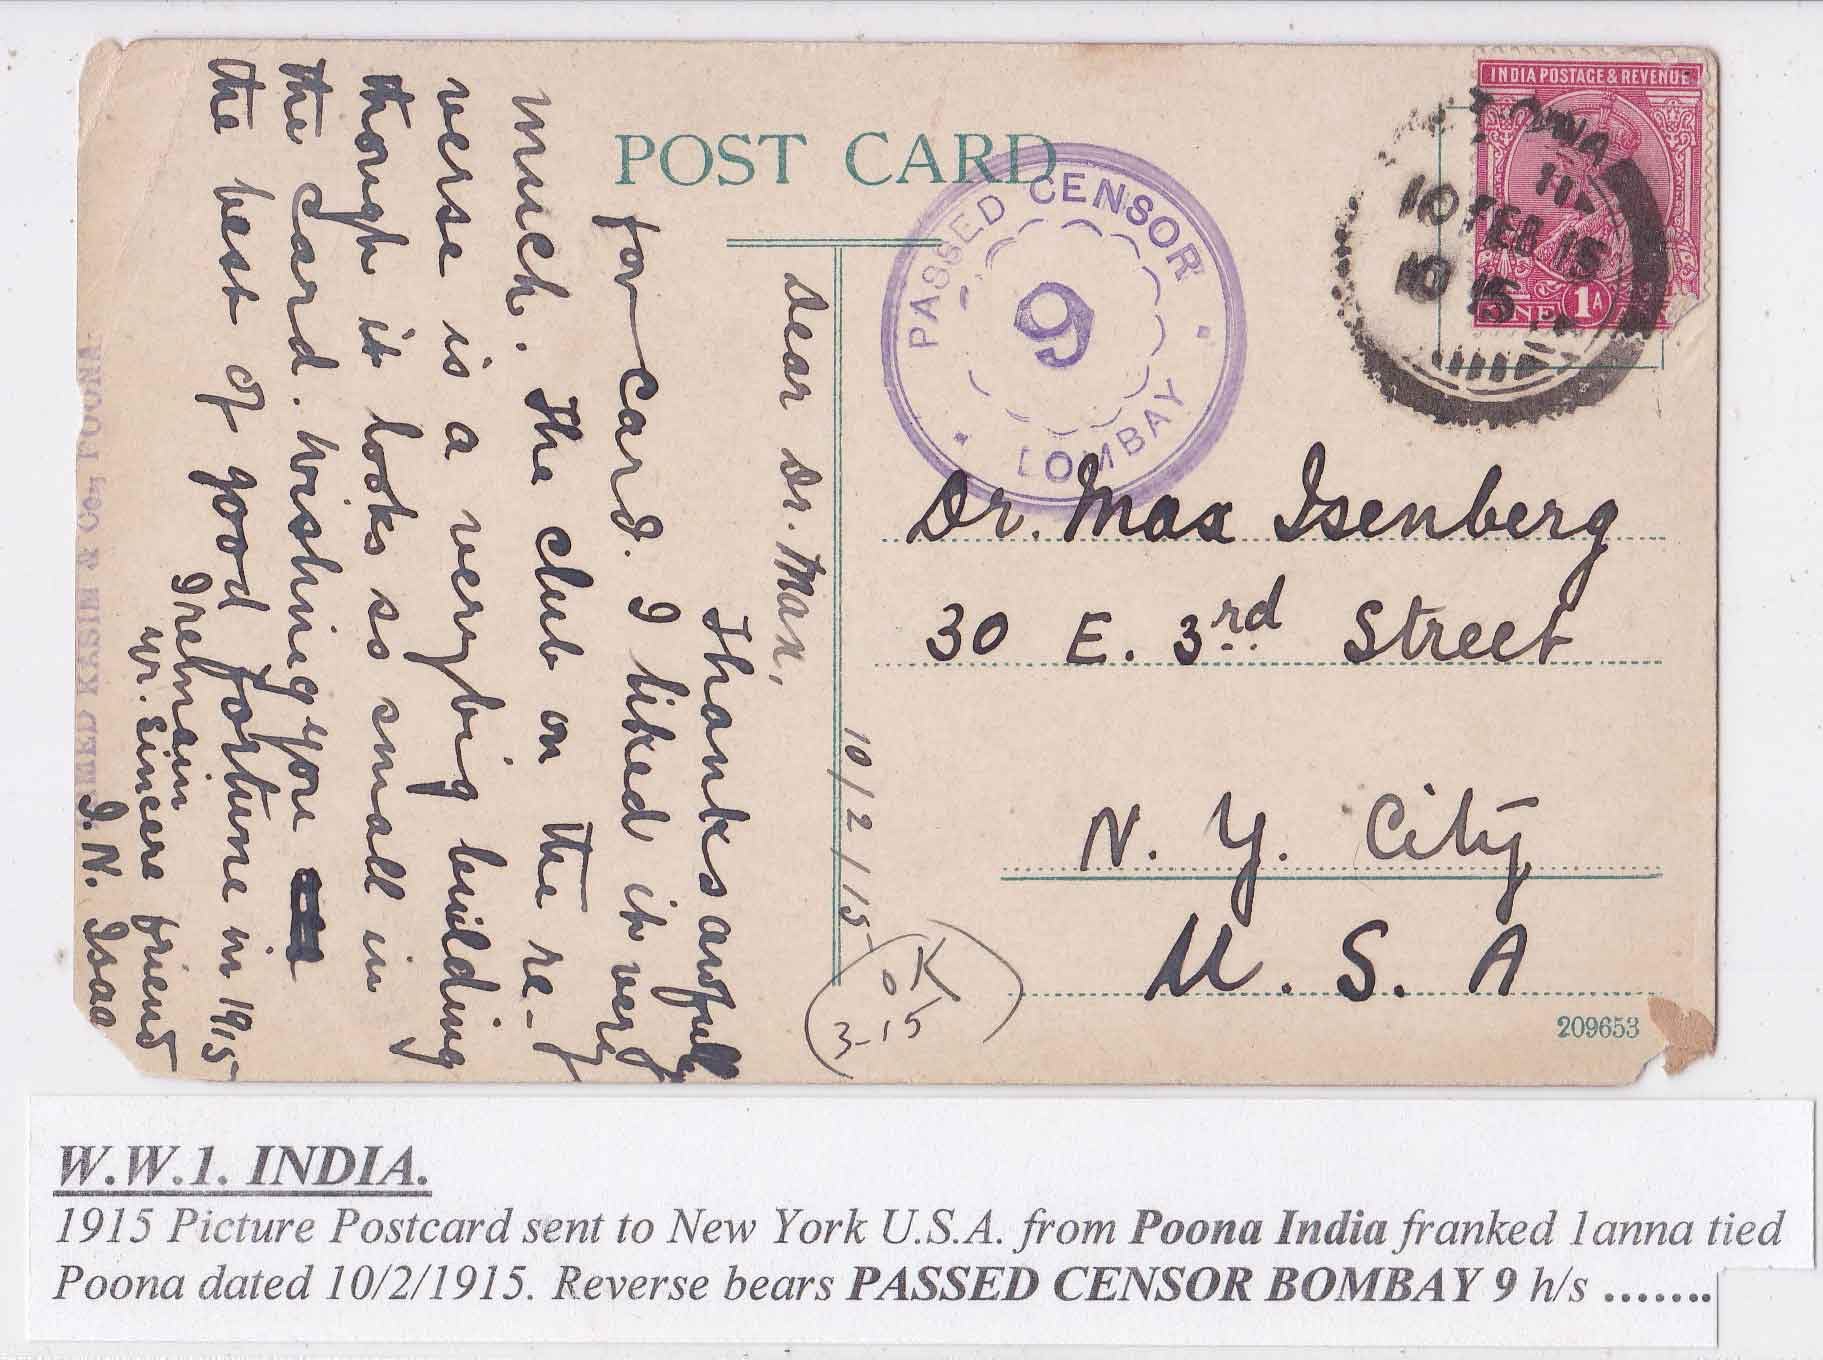 POST CARD
INDIA POSTAGE & REVENUE
1A
POONA
10 FEB 15
10 15
PASSED CENSOR
9
BOMBAY
Dr. Max Isenberg
30 E. 3rd Street
N. Y. City
U. S. A
209653
10/2/15
OK
3-15
Dear Dr. Max,
Thanks awfully
for card. I liked it very
much. The club on the re-
verse is a very big building
though it looks so small in
the card. Wishing you
the best of good fortune in 1915
I remain
yr. sincere friend
I. N. Isaac
AHMED KASIM & Co., POONA.
W.W.1. INDIA.
1915 Picture Postcard sent to New York U.S.A. from Poona India franked 1anna tied
Poona dated 10/2/1915. Reverse bears PASSED CENSOR BOMBAY 9 h/s .......